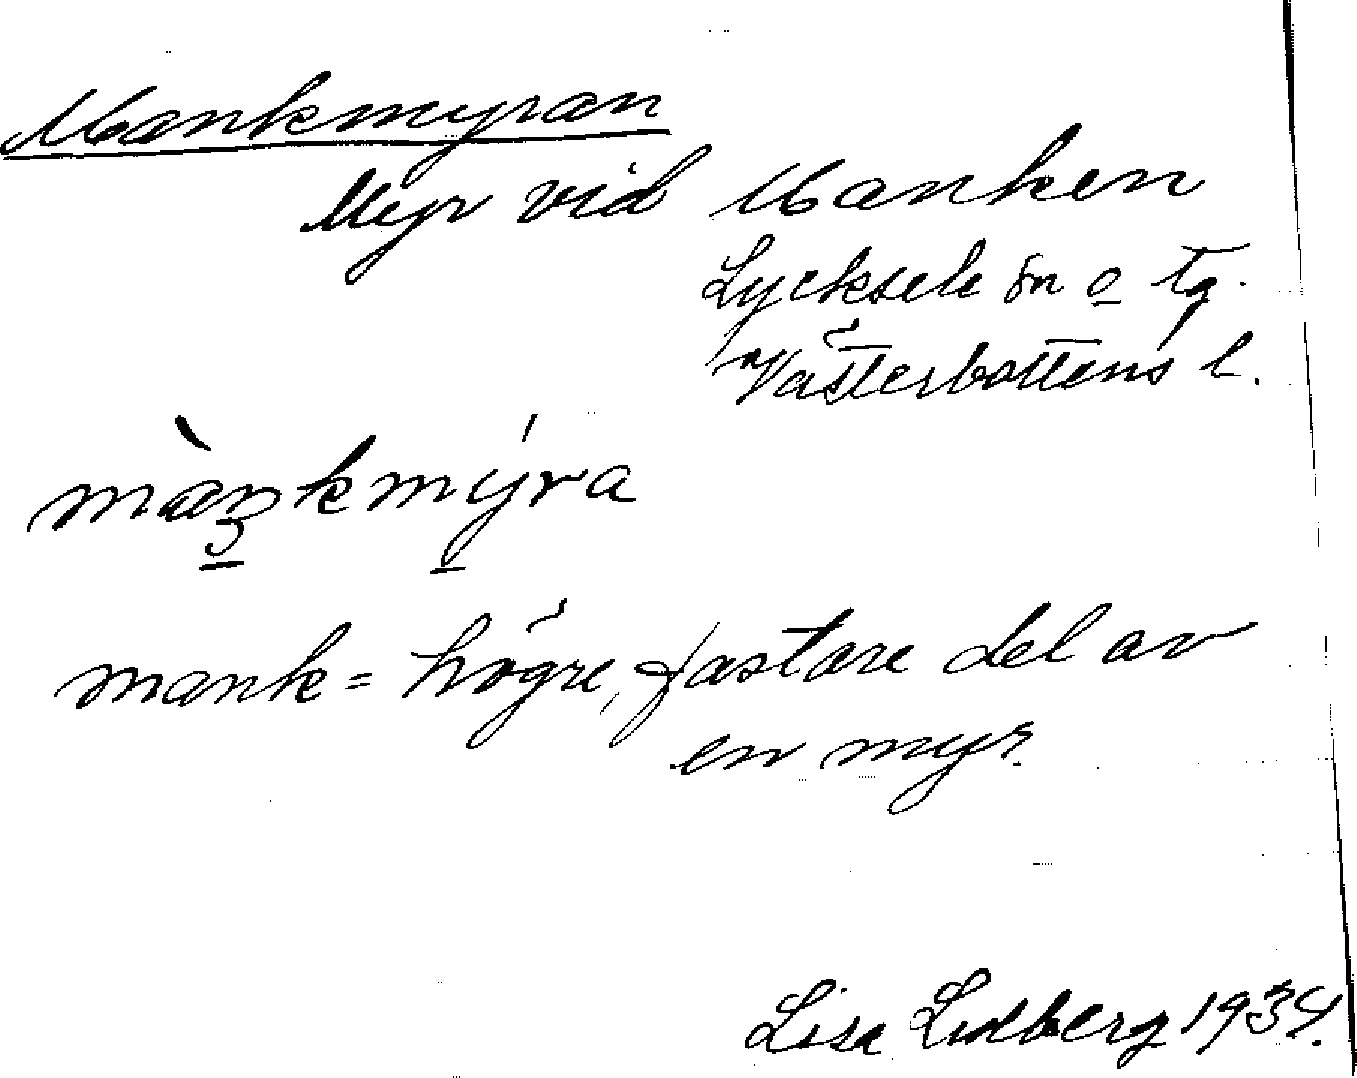 Mankmyran
Myr vid Manken
Lycksele sn o tg.
Västerbottens l.
màŋkmýra
mank = högre, fastare del av
en myr.
Lisa Lidberg 1934.